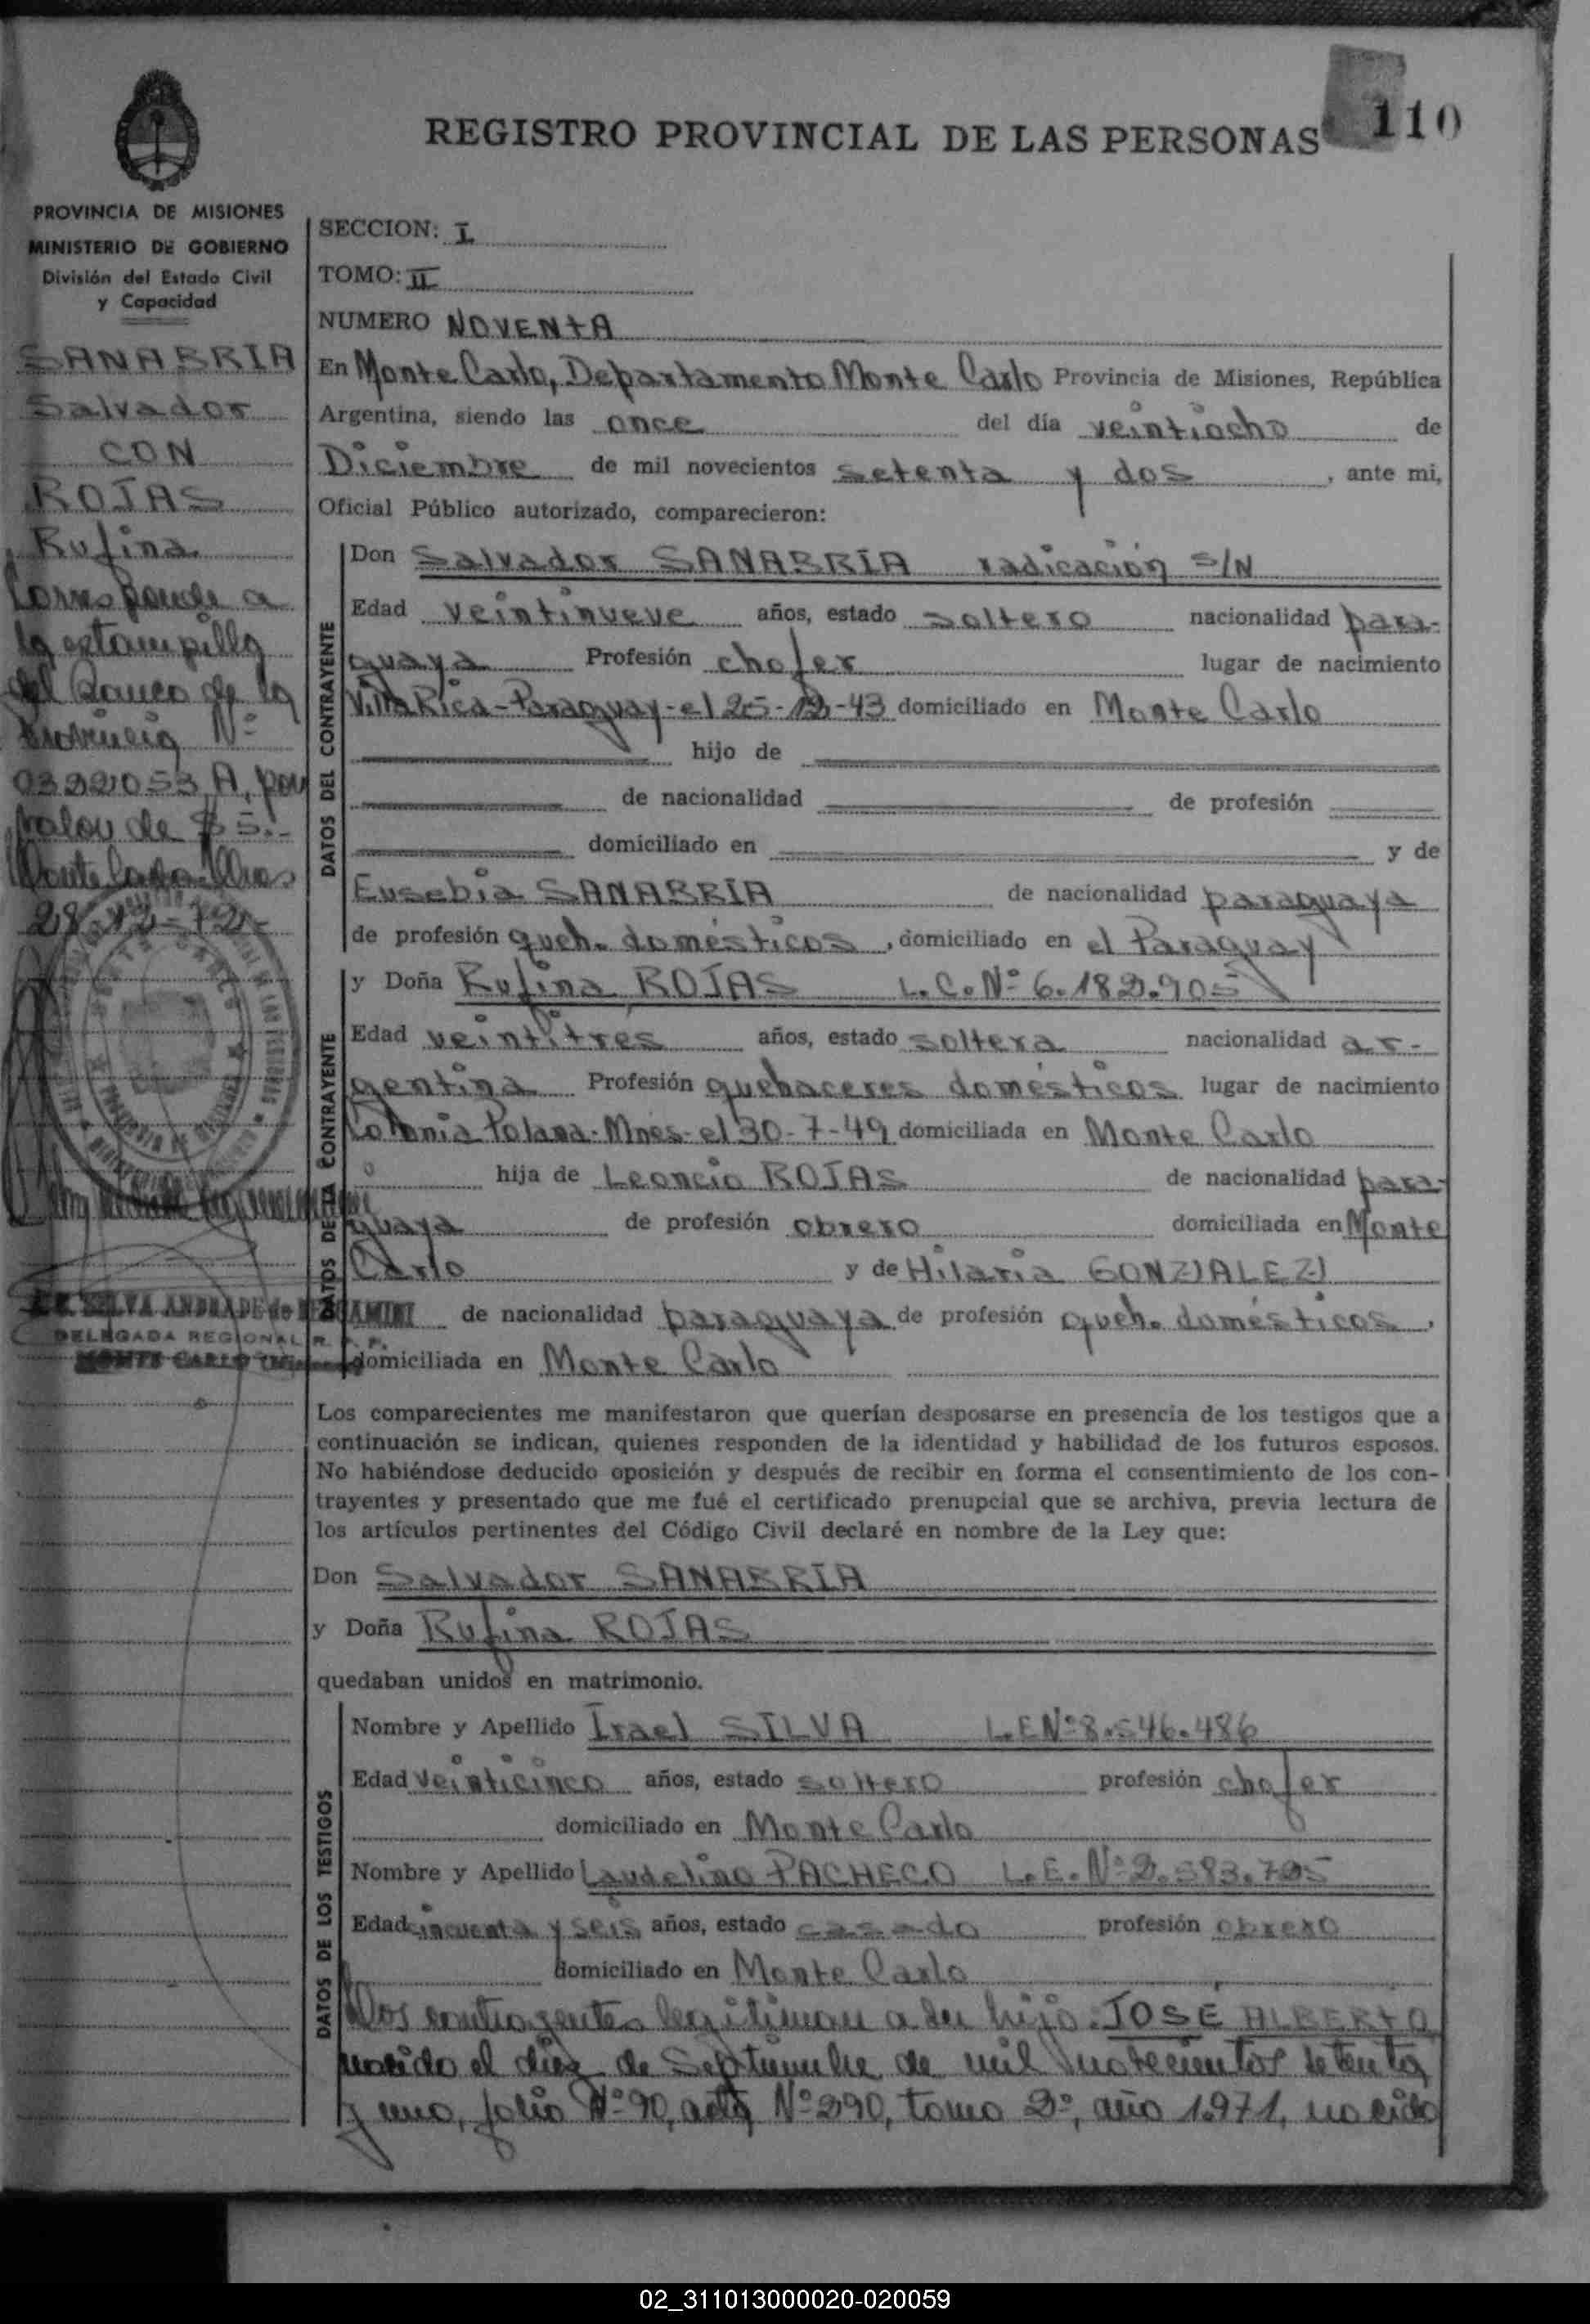 110
REGISTRO PROVINCIAL DE LAS PERSONAS
PROVINCIA DE MISIONES
MINISTERIO DE GOBIERNO
División del Estado Civil
y Capacidad
SANABRIA
Salvador
CON
ROJAS
Rufina
Corresponde a
la estampilla
del Banco de la
Provincia Nº
0322053 A, por
valor de $ 5.-
Monte Carlo Mnes
28-12-72-
DELEGADA REGIONAL R. P. P.
MONTE CARLO
SECCION: I
TOMO: II
NUMERO NOVENTA
En Monte Carlo, Departamento Monte Carlo Provincia de Misiones, República
Argentina, siendo las once del día veintiocho de
Diciembre de mil novecientos setenta y dos, ante mi,
Oficial Público autorizado, comparecieron:
DATOS DEL CONTRAYENTE
Don Salvador SANABRIA radicación S/N
Edad veintinueve años, estado soltero nacionalidad para-
guaya Profesión chofer lugar de nacimiento
Villa Rica-Paraguay-el 25-12-43 domiciliado en Monte Carlo
hijo de
de nacionalidad de profesión
domiciliado en y de
Eusebia SANABRIA de nacionalidad paraguaya
de profesión queh. domésticos, domiciliado en el Paraguay
DATOS DE LA CONTRAYENTE
y Doña Rufina ROJAS L.C.Nº 6.182.905
Edad veintitres años, estado soltera nacionalidad ar-
gentina Profesión quehaceres domésticos lugar de nacimiento
Colonia Polana-Mnes-el 30-7-49 domiciliada en Monte Carlo
hija de Leoncio ROJAS de nacionalidad para-
guaya de profesión obrero domiciliada en Monte
Carlo y de Hilaria GONZALEZ
de nacionalidad paraguaya de profesión queh. domésticos,
domiciliada en Monte Carlo
Los comparecientes me manifestaron que querían desposarse en presencia de los testigos que a
continuación se indican, quienes responden de la identidad y habilidad de los futuros esposos.
No habiéndose deducido oposición y después de recibir en forma el consentimiento de los con-
trayentes y presentado que me fué el certificado prenupcial que se archiva, previa lectura de
los artículos pertinentes del Código Civil declaré en nombre de la Ley que:
Don Salvador SANABRIA
y Doña Rufina ROJAS
quedaban unidos en matrimonio.
DATOS DE LOS TESTIGOS
Nombre y Apellido Irael SILVA L.E Nº 8.546.486
Edad veinticinco años, estado soltero profesión chofer
domiciliado en Monte Carlo
Nombre y Apellido Laudelino PACHECO L.E. Nº 2.583.725
Edad cincuenta y seis años, estado casado profesión obrero
domiciliado en Monte Carlo
Los contrayentes legitiman a su hijo: JOSÉ ALBERTO
nacido el diez de Septiembre de mil novecientos setenta
y uno, folio Nº 90, acta Nº 290, tomo 2º, año 1.971, nacido
02_311013000020-020059